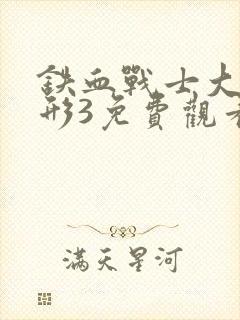 鉄血戰士大
形3免費觀看
滿天星河